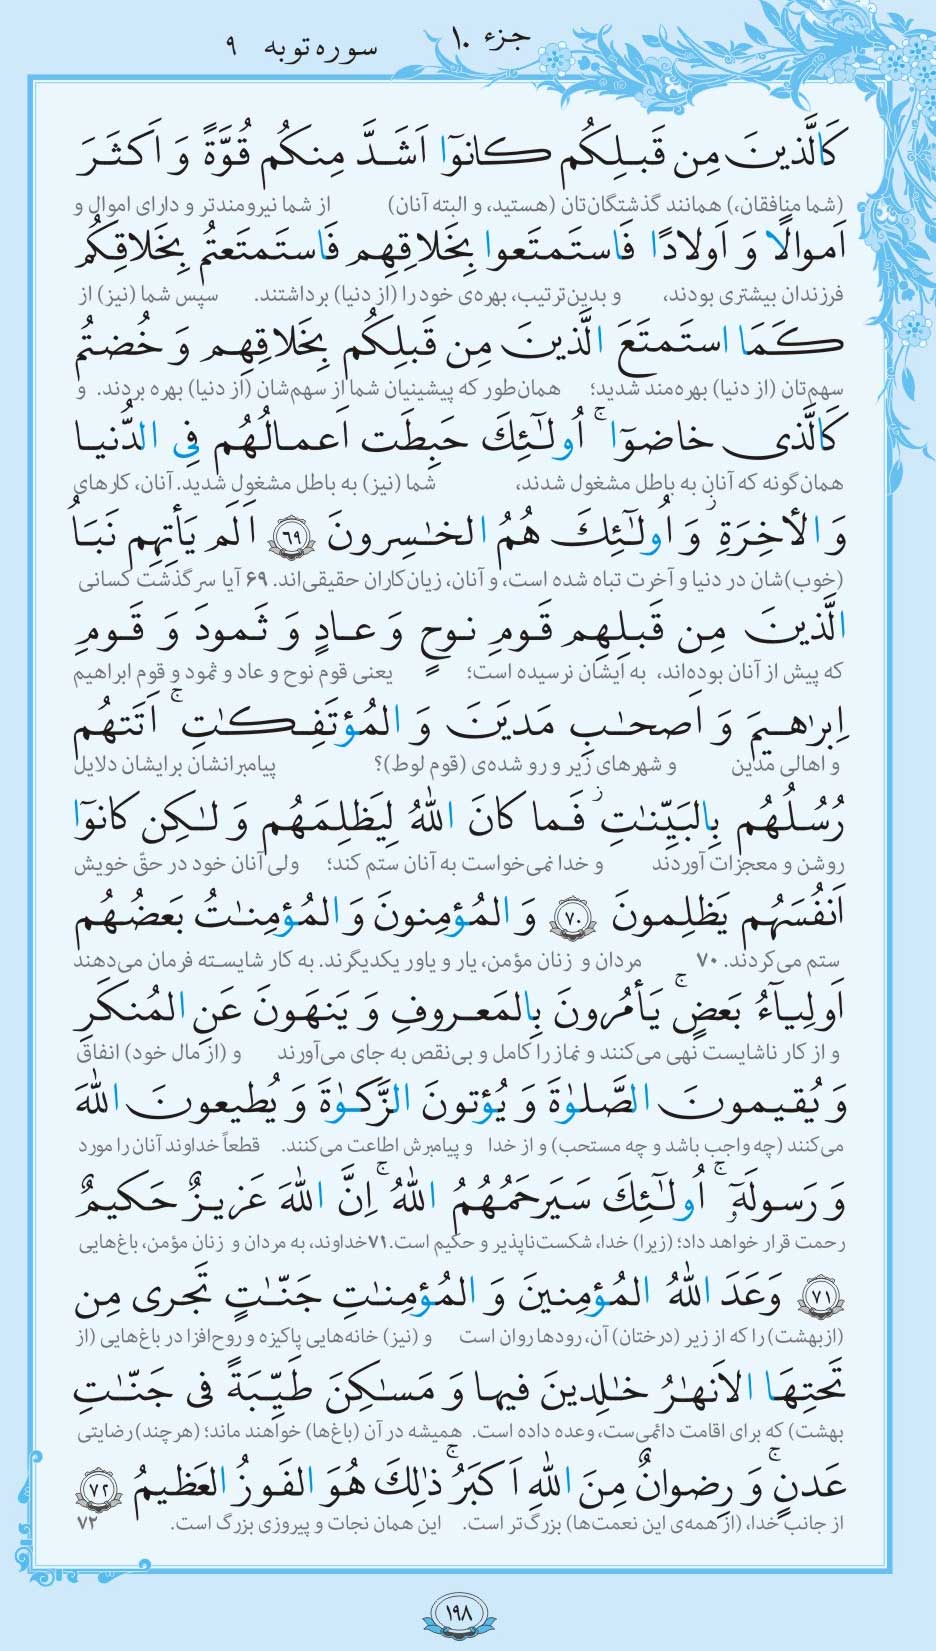 جزء ۱۰ سوره توبه ۹
کَالَّذینَ مِن قَبلِکُم کانوٓا اَشَدَّ مِنکُم قُوَّةً وَ اَکثَرَ
(شما منافقان،) همانند گذشتگان‌تان (هستید، و البته آنان) از شما نیرومندتر و دارای اموال و
اَموالًا وَ اَولادًا فَاستَمتَعوا بِخَلاقِهِم فَاستَمتَعتُم بِخَلاقِکُم
فرزندان بیشتری بودند، و بدین‌ترتیب، بهره‌ی خود را (از دنیا) برداشتند. سپس شما (نیز) از
کَمَا استَمتَعَ الَّذینَ مِن قَبلِکُم بِخَلاقِهِم وَ خُضتُم
سهم‌تان (از دنیا) بهره‌مند شدید؛ همان‌طور که پیشینیان شما از سهم‌شان (از دنیا) بهره بردند. و
کَالَّذی خاضوٓا ۚ اُولٰٓئِکَ حَبِطَت اَعمالُهُم فِی الدُّنیا
همان‌گونه که آنان به باطل مشغول شدند، شما (نیز) به باطل مشغول شدید. آنان، کارهای
وَ الأخِرَةِ ۖ وَ اُولٰٓئِکَ هُمُ الخٰسِرونَ ۶۹ اَلَم یَأتِهِم نَبَأُ
(خوب)شان در دنیا و آخرت تباه شده است، و آنان، زیان‌کاران حقیقی‌اند. ۶۹ آیا سرگذشت کسانی
الَّذینَ مِن قَبلِهِم قَومِ نوحٍ وَ عادٍ وَ ثَمودَ وَ قَومِ
که پیش از آنان بوده‌اند، به ایشان نرسیده است؛ یعنی قوم نوح و عاد و ثمود و قوم ابراهیم
اِبرٰهیمَ وَ اَصحٰبِ مَدیَنَ وَ المُؤتَفِکٰتِ ۚ اَتَتهُم
و اهالی مدین و شهرهای زیر و رو شده‌ی (قوم لوط)؟ پیامبرانشان برایشان دلایل
رُسُلُهُم بِالبَیِّنٰتِ ۖ فَما کانَ اللّٰهُ لِیَظلِمَهُم وَ لٰکِن کانوٓا
روشن و معجزات آوردند و خدا نمی‌خواست به آنان ستم کند؛ ولی آنان خود در حقّ خویش
اَنفُسَهُم یَظلِمونَ ۷۰ وَ المُؤمِنونَ وَ المُؤمِنٰتُ بَعضُهُم
ستم می‌کردند. ۷۰ مردان و زنان مؤمن، یار و یاور یکدیگرند. به کار شایسته فرمان می‌دهند
اَولِیآءُ بَعضٍ ۚ یَأمُرونَ بِالمَعروفِ وَ یَنهَونَ عَنِ المُنکَرِ
و از کار ناشایست نهی می‌کنند و نماز را کامل و بی‌نقص به جای می‌آورند و (از مال خود) انفاق
وَ یُقیمونَ الصَّلوٰةَ وَ یُؤتونَ الزَّکوٰةَ وَ یُطیعونَ اللّٰهَ
می‌کنند (چه واجب باشد و چه مستحب) و از خدا و پیامبرش اطاعت می‌کنند. قطعاً خداوند آنان را مورد
وَ رَسولَهٓ ۚ اُولٰٓئِکَ سَیَرحَمُهُمُ اللّٰهُ ۚ اِنَّ اللّٰهَ عَزیزٌ حَکیمٌ
رحمت قرار خواهد داد؛ (زیرا) خدا، شکست‌ناپذیر و حکیم است.۷۱ خداوند، به مردان و زنان مؤمن، باغ‌هایی
۷۱ وَعَدَ اللّٰهُ المُؤمِنینَ وَ المُؤمِنٰتِ جَنّٰتٍ تَجری مِن
(ازبهشت) را که از زیر (درختان) آن، رودها روان است و (نیز) خانه‌هایی پاکیزه و روح‌افزا در باغ‌هایی (از
تَحتِهَا الاَنهٰرُ خٰلِدینَ فیها وَ مَسٰکِنَ طَیِّبَةً فی جَنّٰتِ
بهشت) که برای اقامت دائمی‌ست، وعده داده است. همیشه در آن (باغ‌ها) خواهند ماند؛ (هرچند) رضایتی
عَدنٍ ۚ وَ رِضوانٌ مِنَ اللّٰهِ اَکبَرُ ۚ ذٰلِکَ هُوَ الفَوزُ العَظیمُ ۷۲
از جانب خدا، (از همه‌ی این نعمت‌ها) بزرگ‌تر است. این همان نجات و پیروزی بزرگ است. ۷۲
۱۹۸